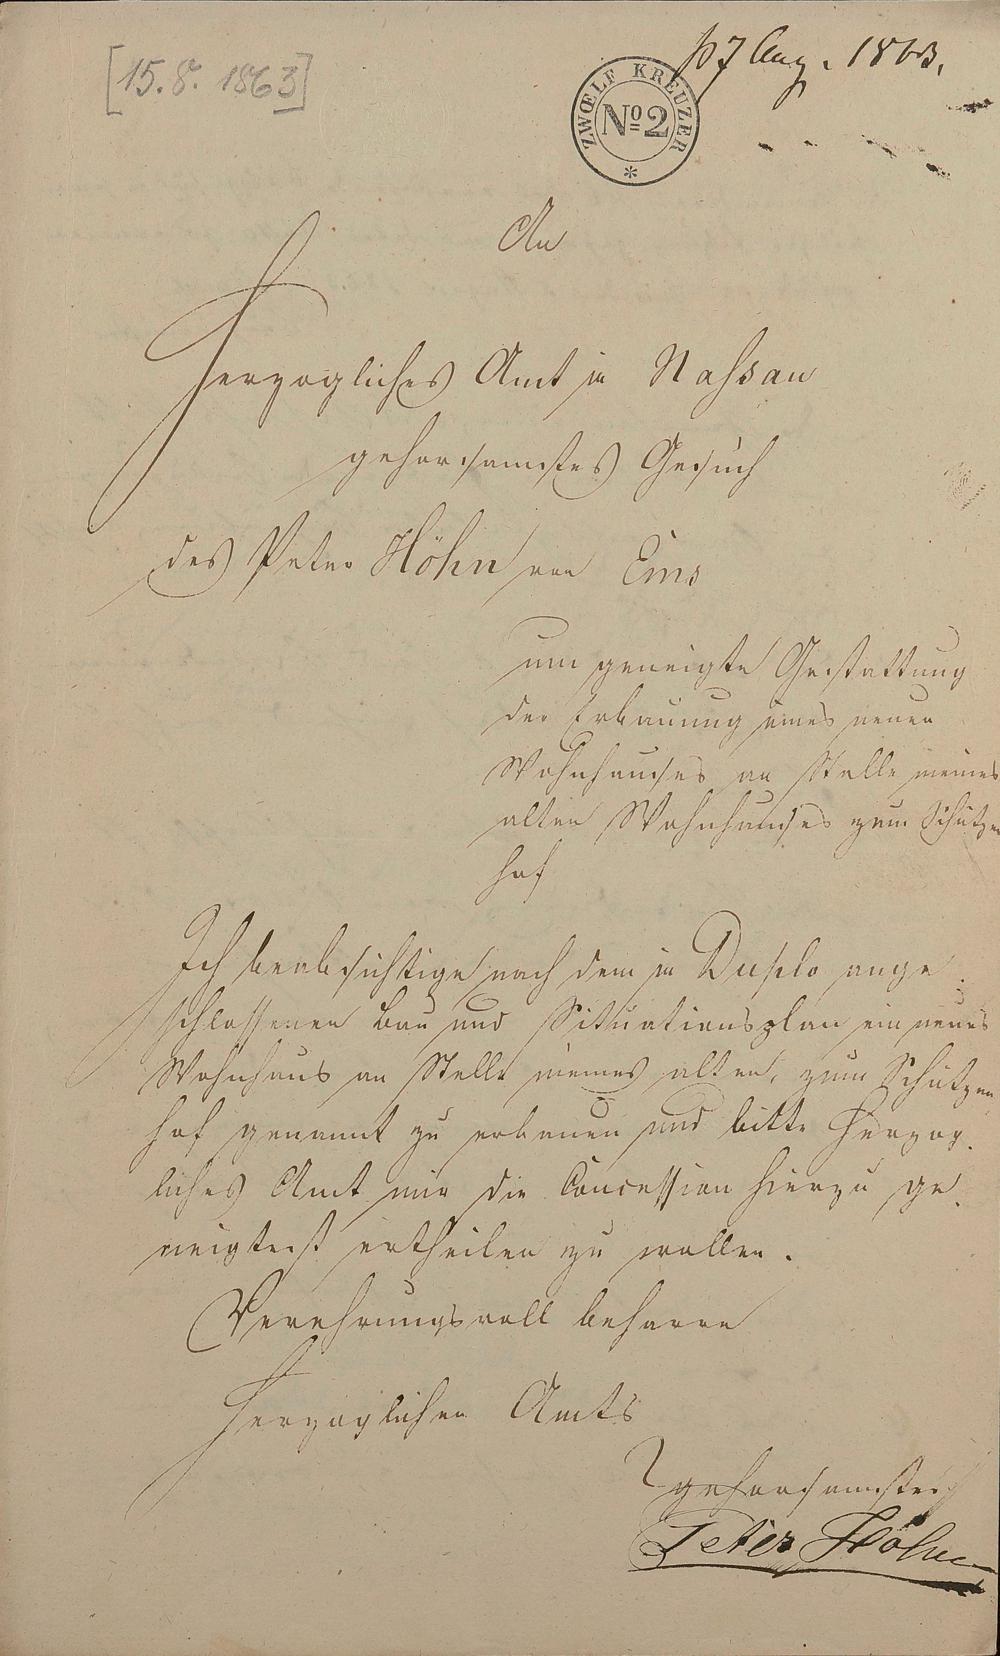 [15.8.1863]
p 17 Aug. 1863.
ZWŒLF KREUZER
No 2
An
Herzogliches Amt in Nassau
gehorsamstes Gesuch
des Peter Höhn von Ems
um geneigte Gestattung
der Erbauung eines neuen
Wohnhauses an Stelle meines
alten Wohnhauses zum Schützen
hof
Ich beabsichtige nach dem in Duplo ange
schlossenen Bau und Situationsplan ein neues
Wohnhaus an Stelle meines alten, zum Schützen
hof genannt zu erbauen und bitte Herzog
liches Amt mir die Concession hierzu ge
neigtest ertheilen zu wollen.
Verehrungsvoll beharre
Herzoglichen Amts
gehorsamster
Peter Höhn